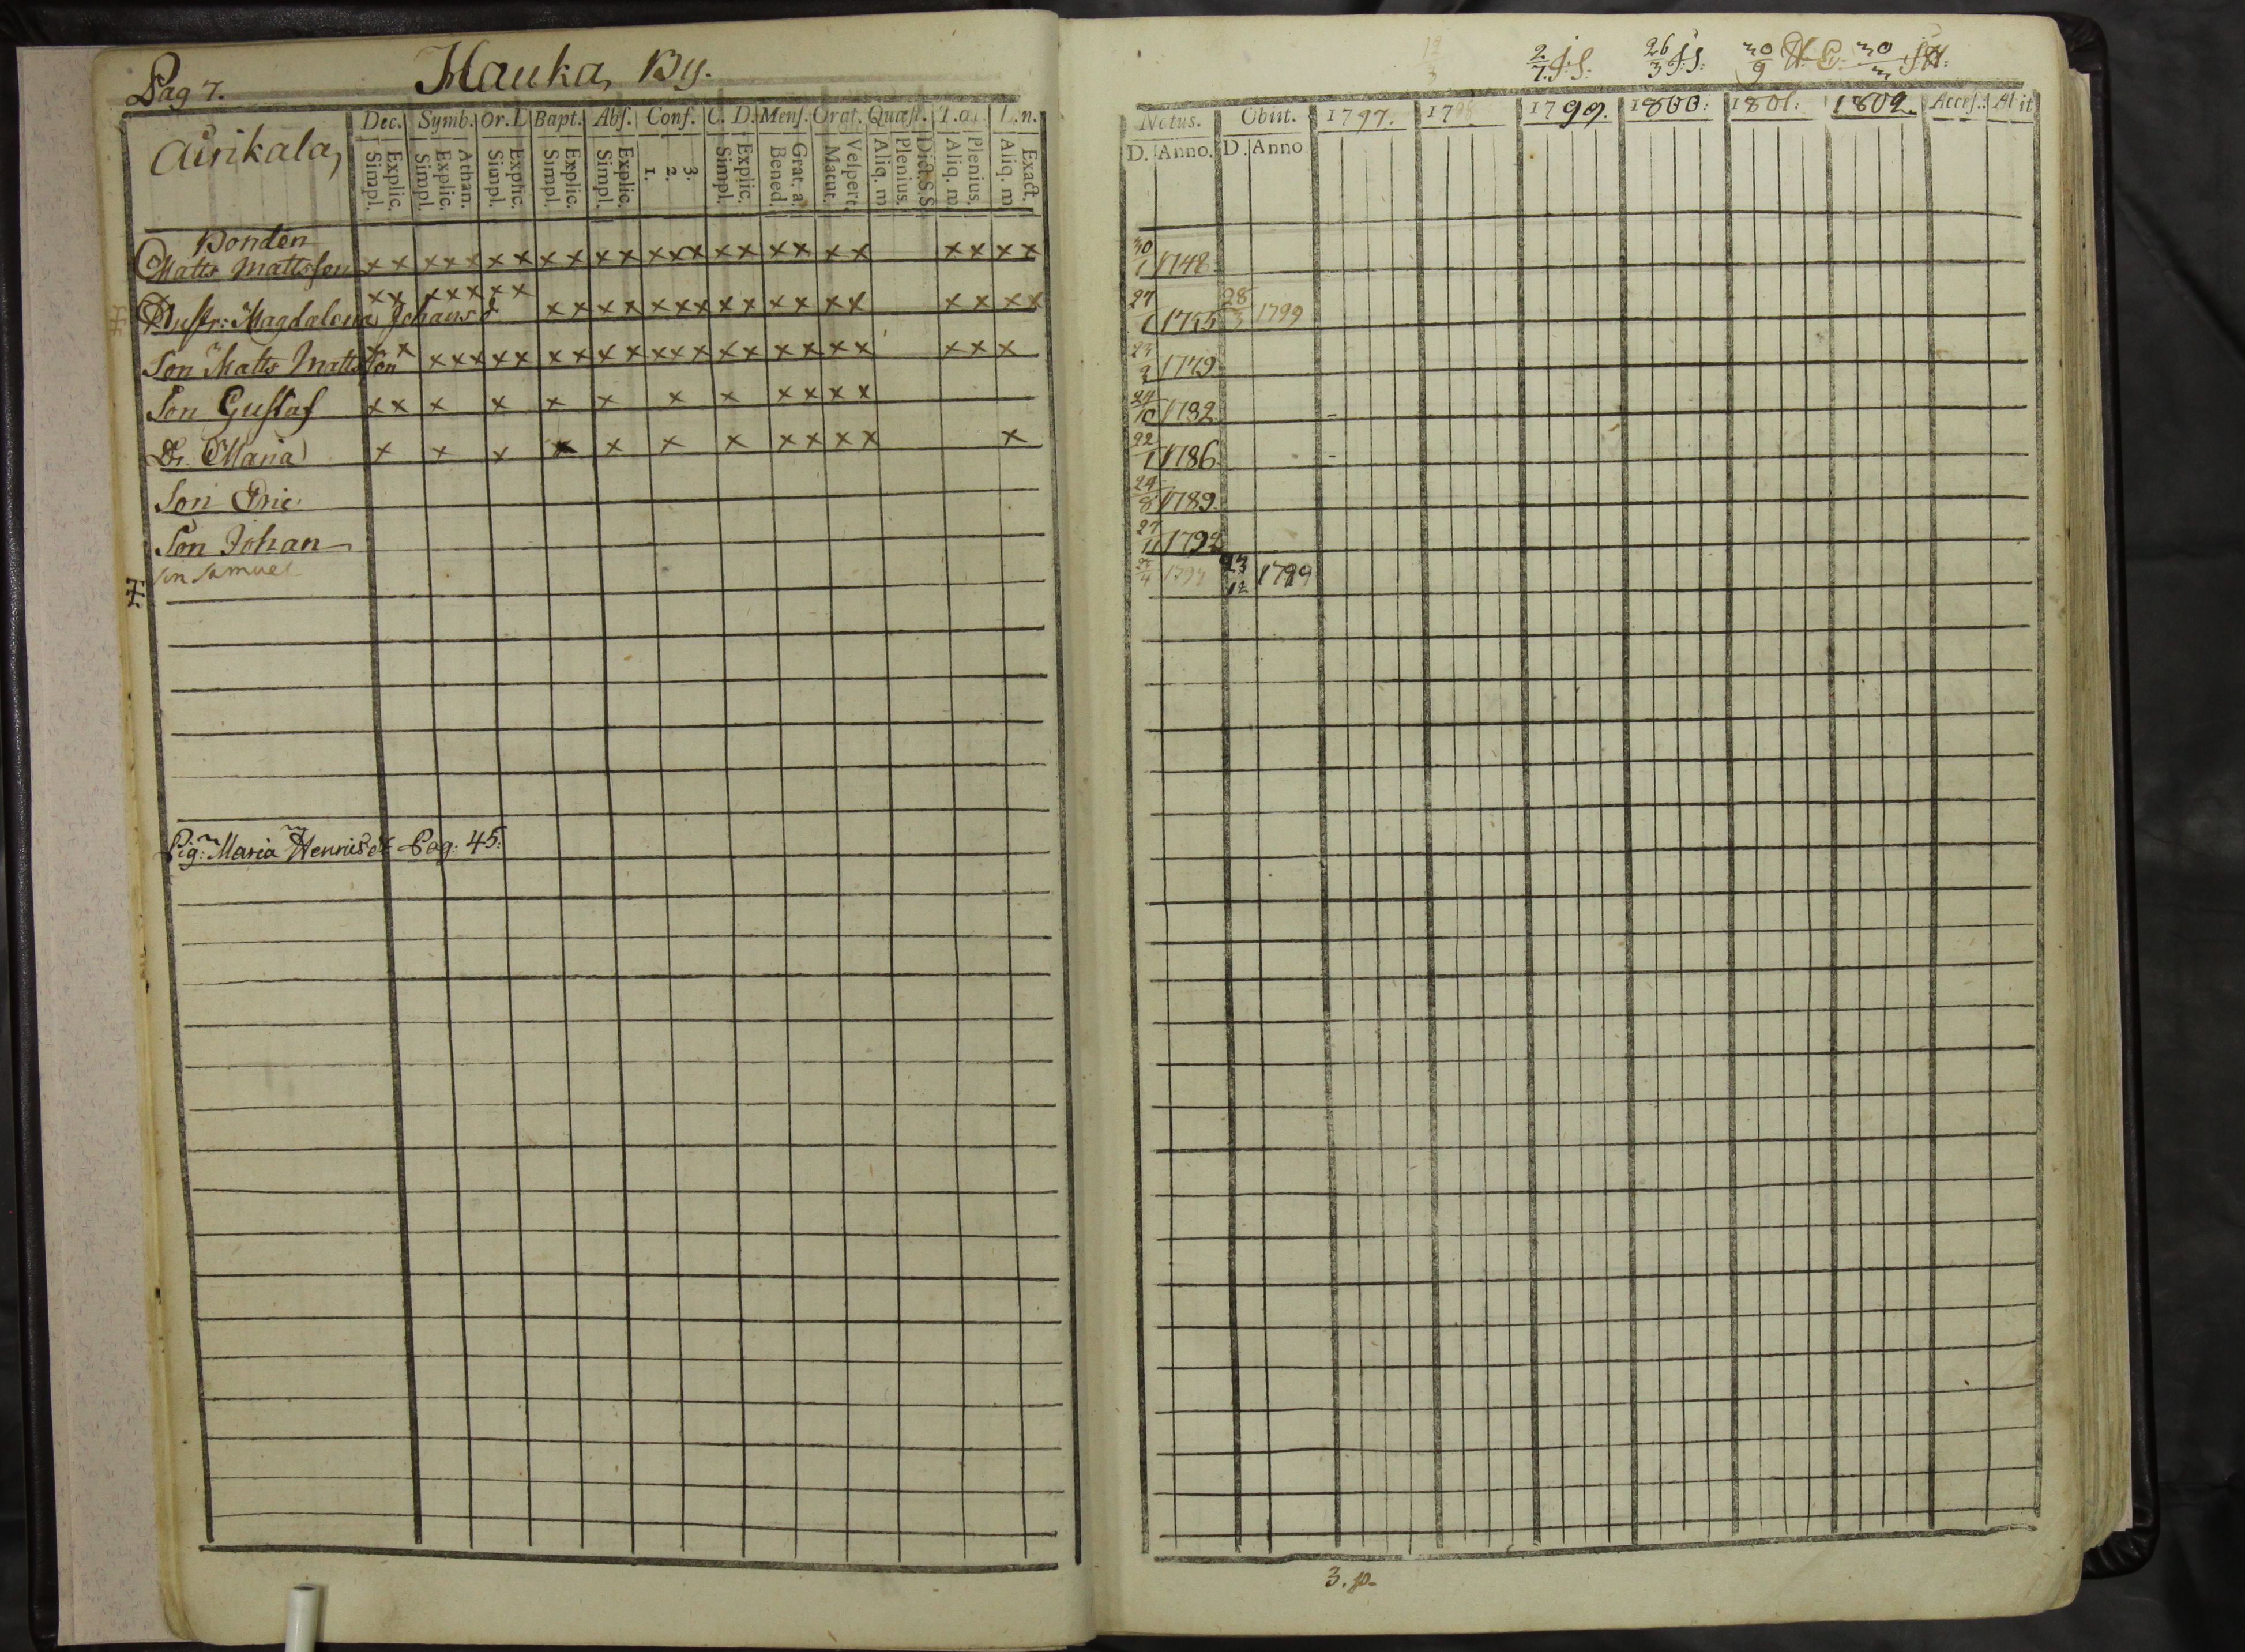 Pag 7. Hauka, By.
Aurikala,
Dec. Symb. Or. D Bapt. Abs. Conf. C. D. Mens. Orat. Quæst. L.n.
Simpl. Explic. Simpl. Explic. Athan. Simpl. Explic. Simpl. Explic. Simpl. Explic. 1. 2. 3. Simpl. Explic. Bened. Grat. a. Matut. Vespert. Aliq. m Plenius. Dict. S.S Aliq. m Plenius. Aliq. m Exact.
Bonden
Matts Mattsson x x x x x x x x x x x x x x x x x x x x x x x
Hustr: Magdalena Johansd x x x x x x x x x x x x x x x x x x x x x x x
Son Matts Mattsson x x x x x x x x x x x x x x x x x x x x x x
Son Gustaf x x x x x x x x x x x x
Dr. Maria x x x x x x x x x x x x
Son Eric
Son Johan
son Samuel
Pig: Maria Henricsdr Pag: 45:
2/7. J.S. 26/3 J.S: 30/9
Natus. Obiit. 1797. 17 1799. 1800: 1801: 1802. Access. Abiit
D. Anno. D. Anno
30/1 1748
27/1 1755 28/3 1799
23/2 1779
24/10 1782 -
22/1 1786 -
24/8 1789.
27/11 1792
4 1797 23/12 1799
3. p.